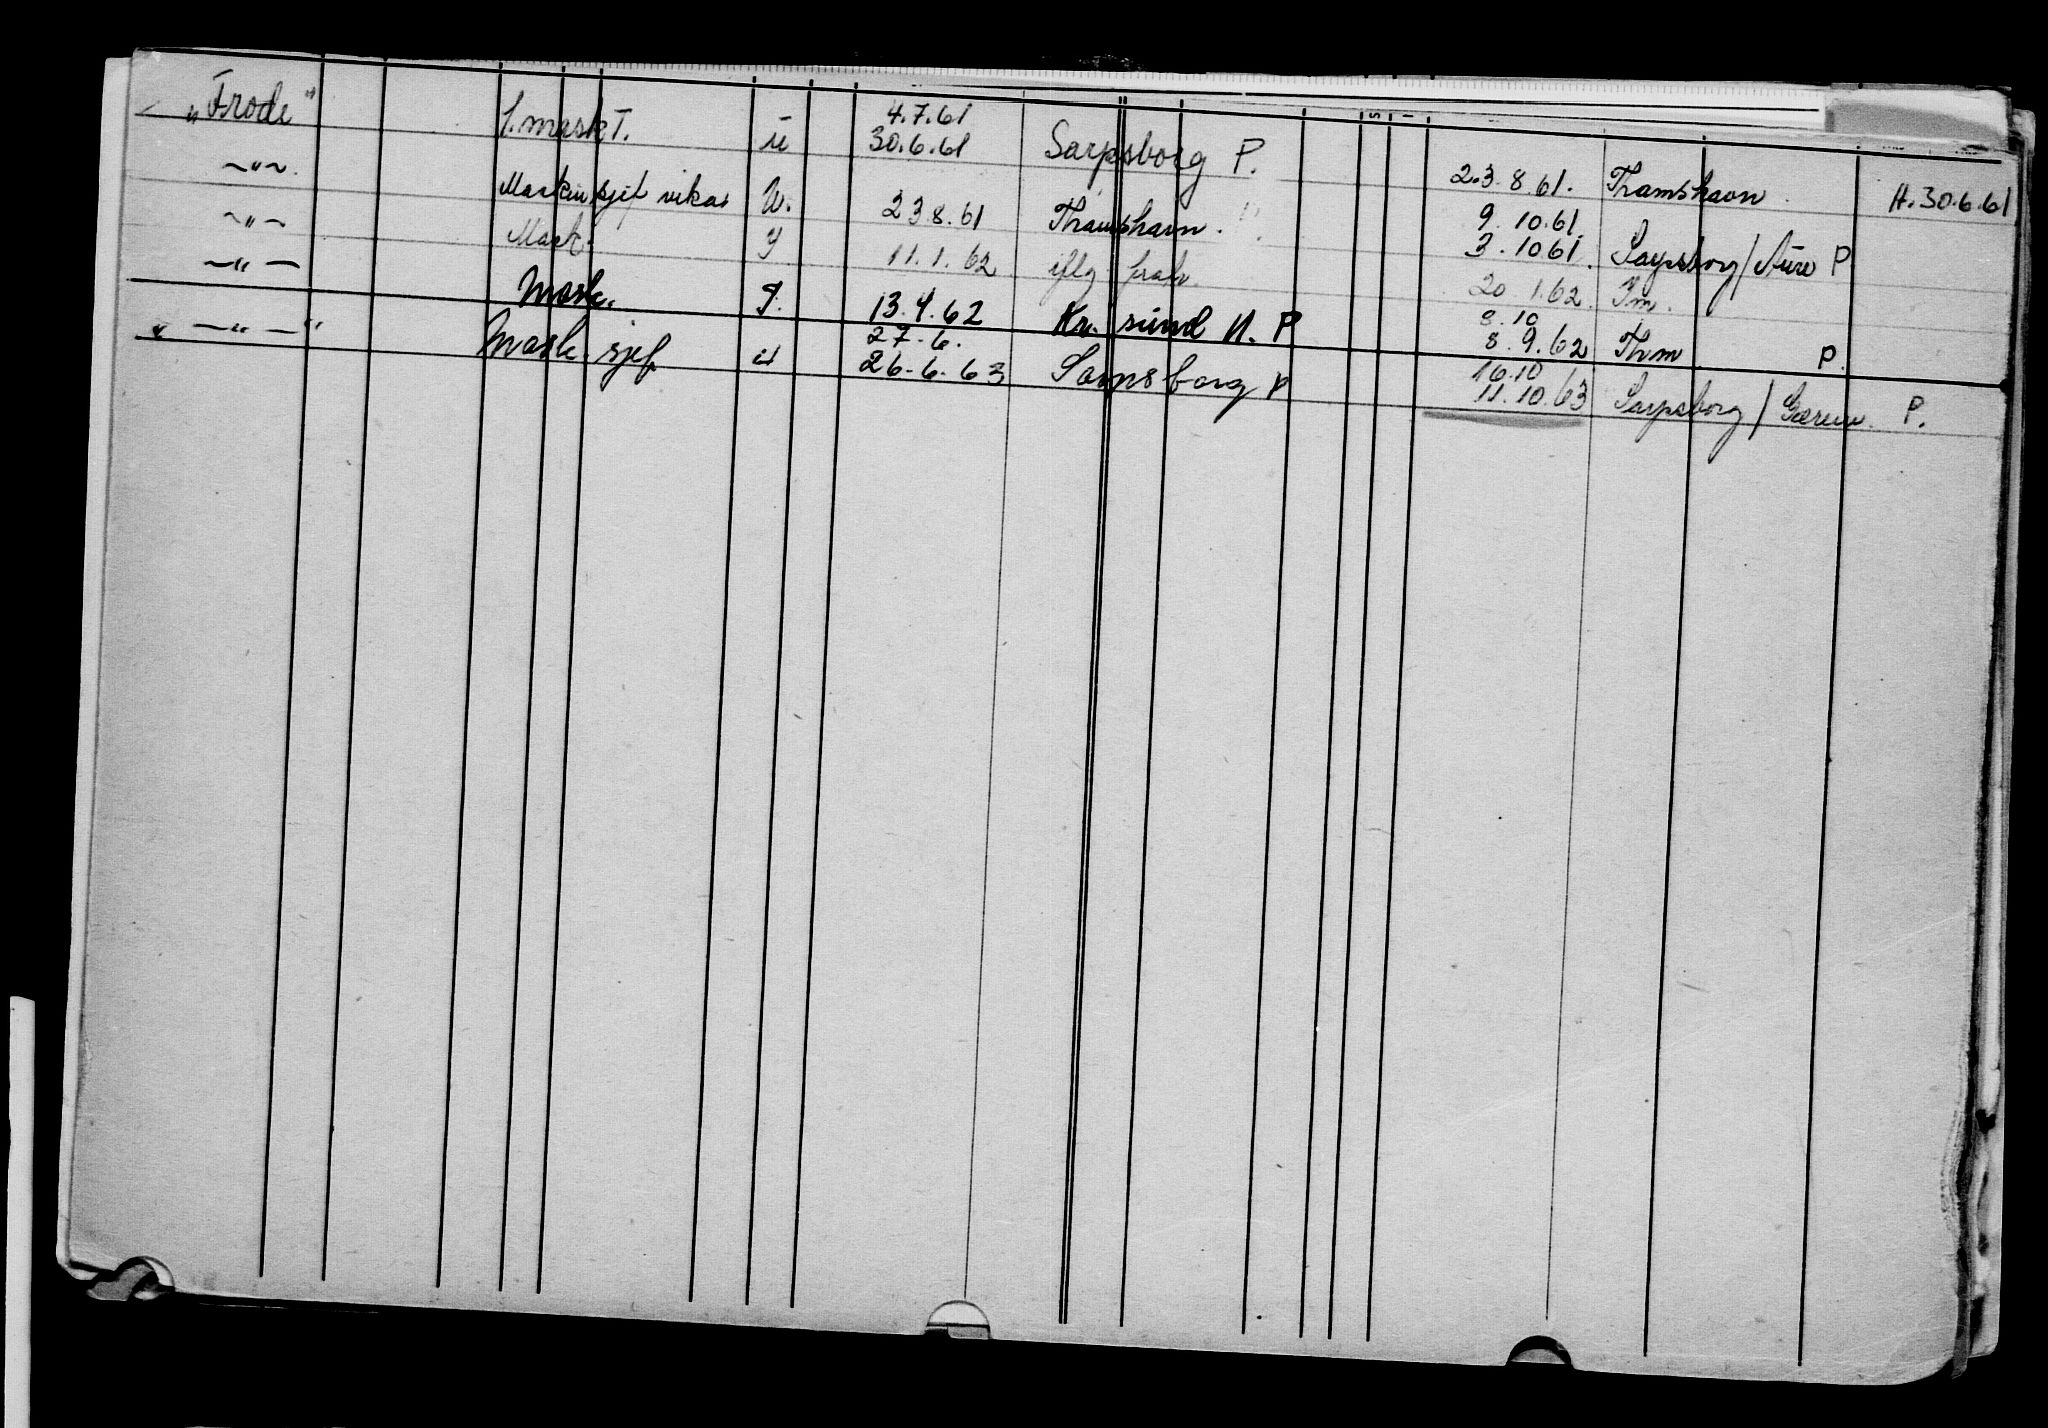 "Frode" 1. mask T. U 4.7.61
30.6.61 Sarpsborg P. 23.8.61. Thamshavn H. 30.6.61
—"— Maskinsjef vikar U. 23.8.61 Thamshavn. 9.10.61.
3.1061. Sarpsborg / Aure P
—"— Mask. 11.1.62 iflg. 20 1.62.
—"— Mask. 13.4.62 Kr. sund N. P 8.10
8.9.62 Thm P.
—"— Mask. sjef 27-6.
26-6-63 Sarpsborg P 16.10
11.10.63 Sarpsborg / P.